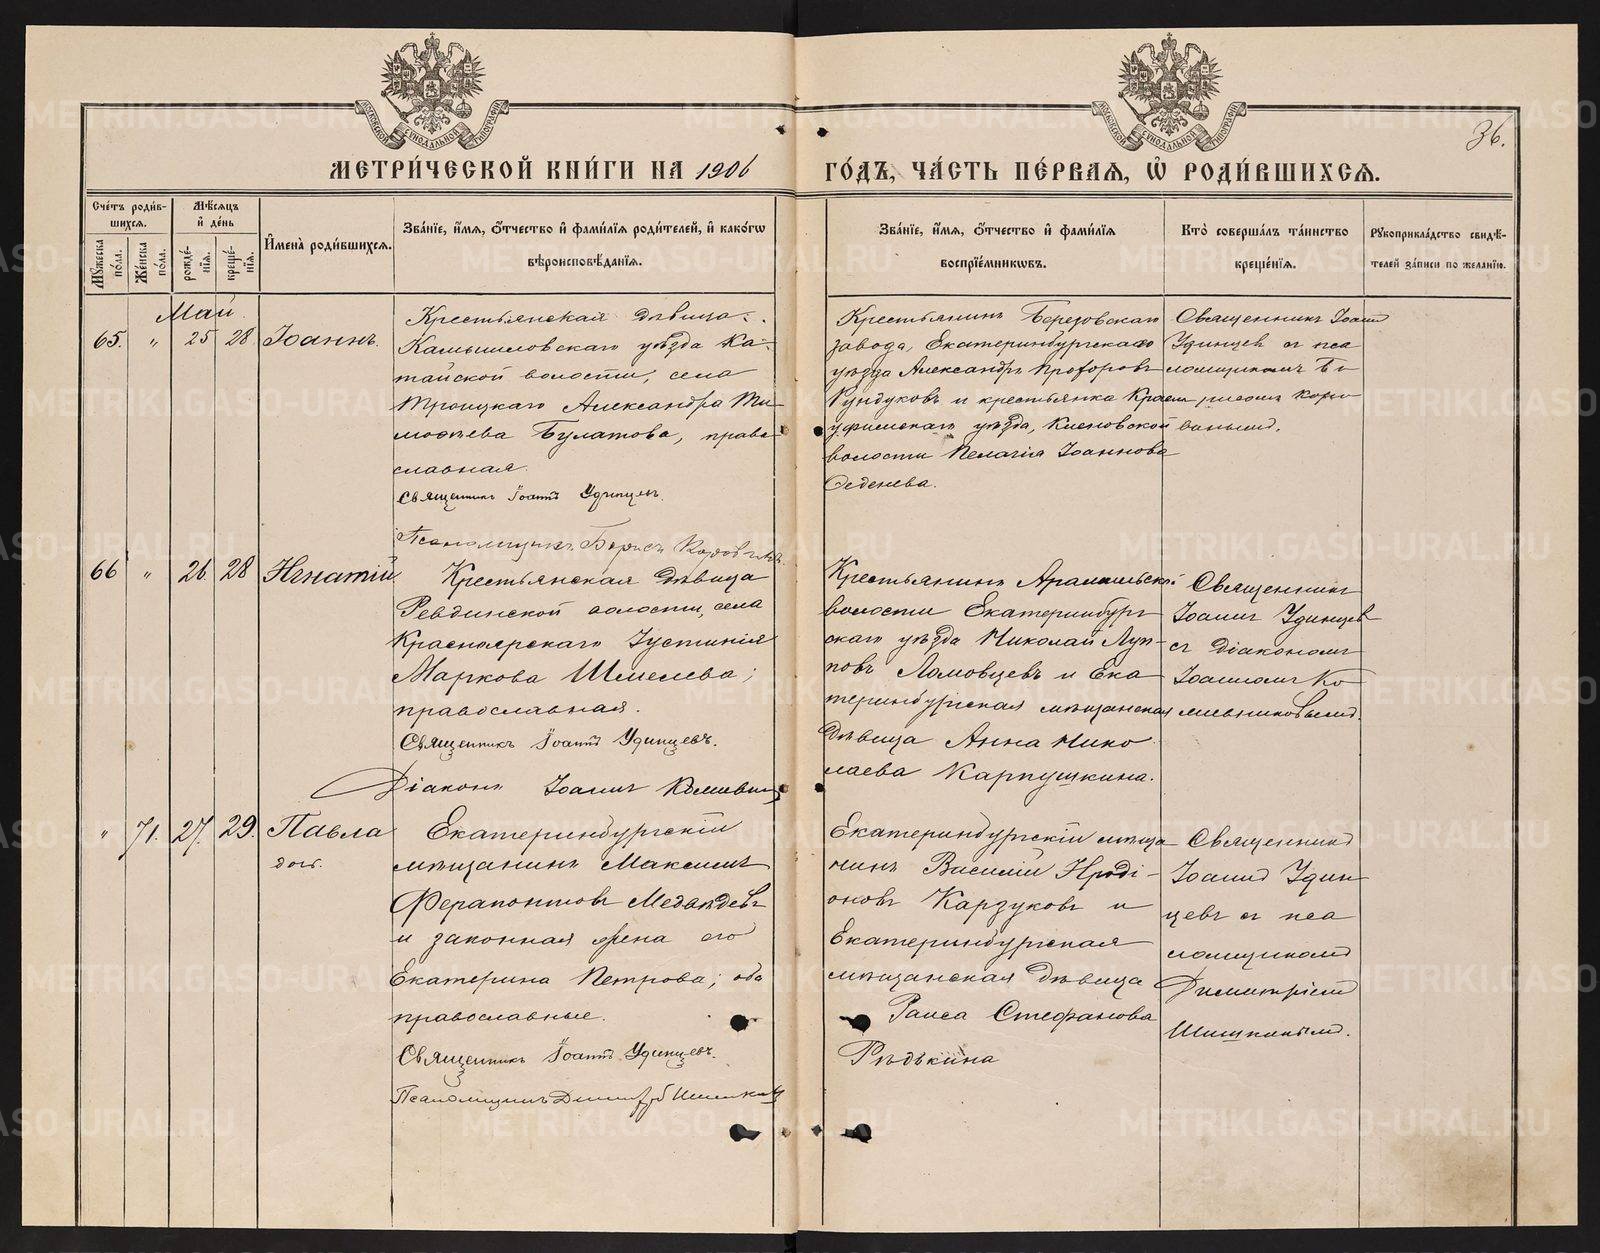 МЕТРИ́ЧЕСКОЙ КНИ́ГИ НА 1906
ГО́ДЪ, ЧА́СТЬ ПЕ́РВАЯ, Ѡ҆ РОДИ́ВШИХСѦ.
36.
Сче́тъ роди́в-
шихсѧ.
Мꙋ́жеска по́ла.
Же́нска по́ла.
Мѣ́сѧцъ
и҆ де́нь
рожде́-
нїѧ.
креще́-
нїѧ.
И҆мена̀ роди́вшихсѧ.
Зва́нїе, и҆́мѧ, ѻ҆́тчество и҆ фами́лїѧ роди́телей, и҆ како́гѡ
вѣроисповѣ́данїѧ.
Зва́нїе, и҆́мѧ, ѻ҆́тчество и҆ фами́лїѧ
воспрїе́мникѡвъ.
Кто̀ соверша́лъ та́инство
креще́нїѧ.
Рꙋкоприкла́дство свидѣ́-
телей за́писи по жела́нїю.
Май
65. " 25 28 Іоаннъ.
Крестьянская дѣвица
Камышловскаго уѣзда Ка-
тайской волости, села
Троицкаго Александра Ти-
моѳеева Булатова, право-
славная.
Священникъ Іоаннъ Удинцевъ.
Псаломщикъ Борисъ
Крестьянинъ Березовскаго
завода, Екатеринбургскаго
уѣзда Александръ Прохоровъ
и крестьянка Красно-
уфимскаго уѣзда, Кленовской
волости Пелагія Іоаннова
Ѳеденева.
Священникъ Іоаннъ
Удинцев съ пса-
ломщикомъ Бо-
рисомъ
66 " 26. 28 Игнатій
Крестьянская дѣвица
Ревдинской волости, села
Красноярскаго Іустинія
Маркова Шмелева;
православная.
Священникъ Іоаннъ Удинцевъ.
Діаконъ Іоаннъ
Крестьянинъ Арамильской
волости Екатеринбург-
скаго уѣзда Николай Луп-
повъ Ломовцевъ и Ека-
теринбургская мѣщанская
дѣвица Анна Нико-
лаева Карпушкина.
Священникъ
Іоаннъ Удинцев
съ діакономъ
Іоанномъ
" 71. 27. 29. Павла
Екатеринбургскій
мѣщанинъ Максимъ
Ферапонтовъ Медвѣдевъ
и законная жена его
Екатерина Петрова; оба
православные.
Священникъ Іоаннъ Удинцевъ.
Псаломщикъ
Екатеринбургскій мѣща-
нинъ Василій Ироді-
оновъ Карзуковъ и
Екатеринбургская
мѣщанская дѣвица
Раиса Стефанова
Рѣдькина
Священникъ
Іоаннъ Удин-
цевъ съ пса-
ломщикомъ
Димитріемъ
Шишкинымъ.
METRIKI.GASO-URAL.RU